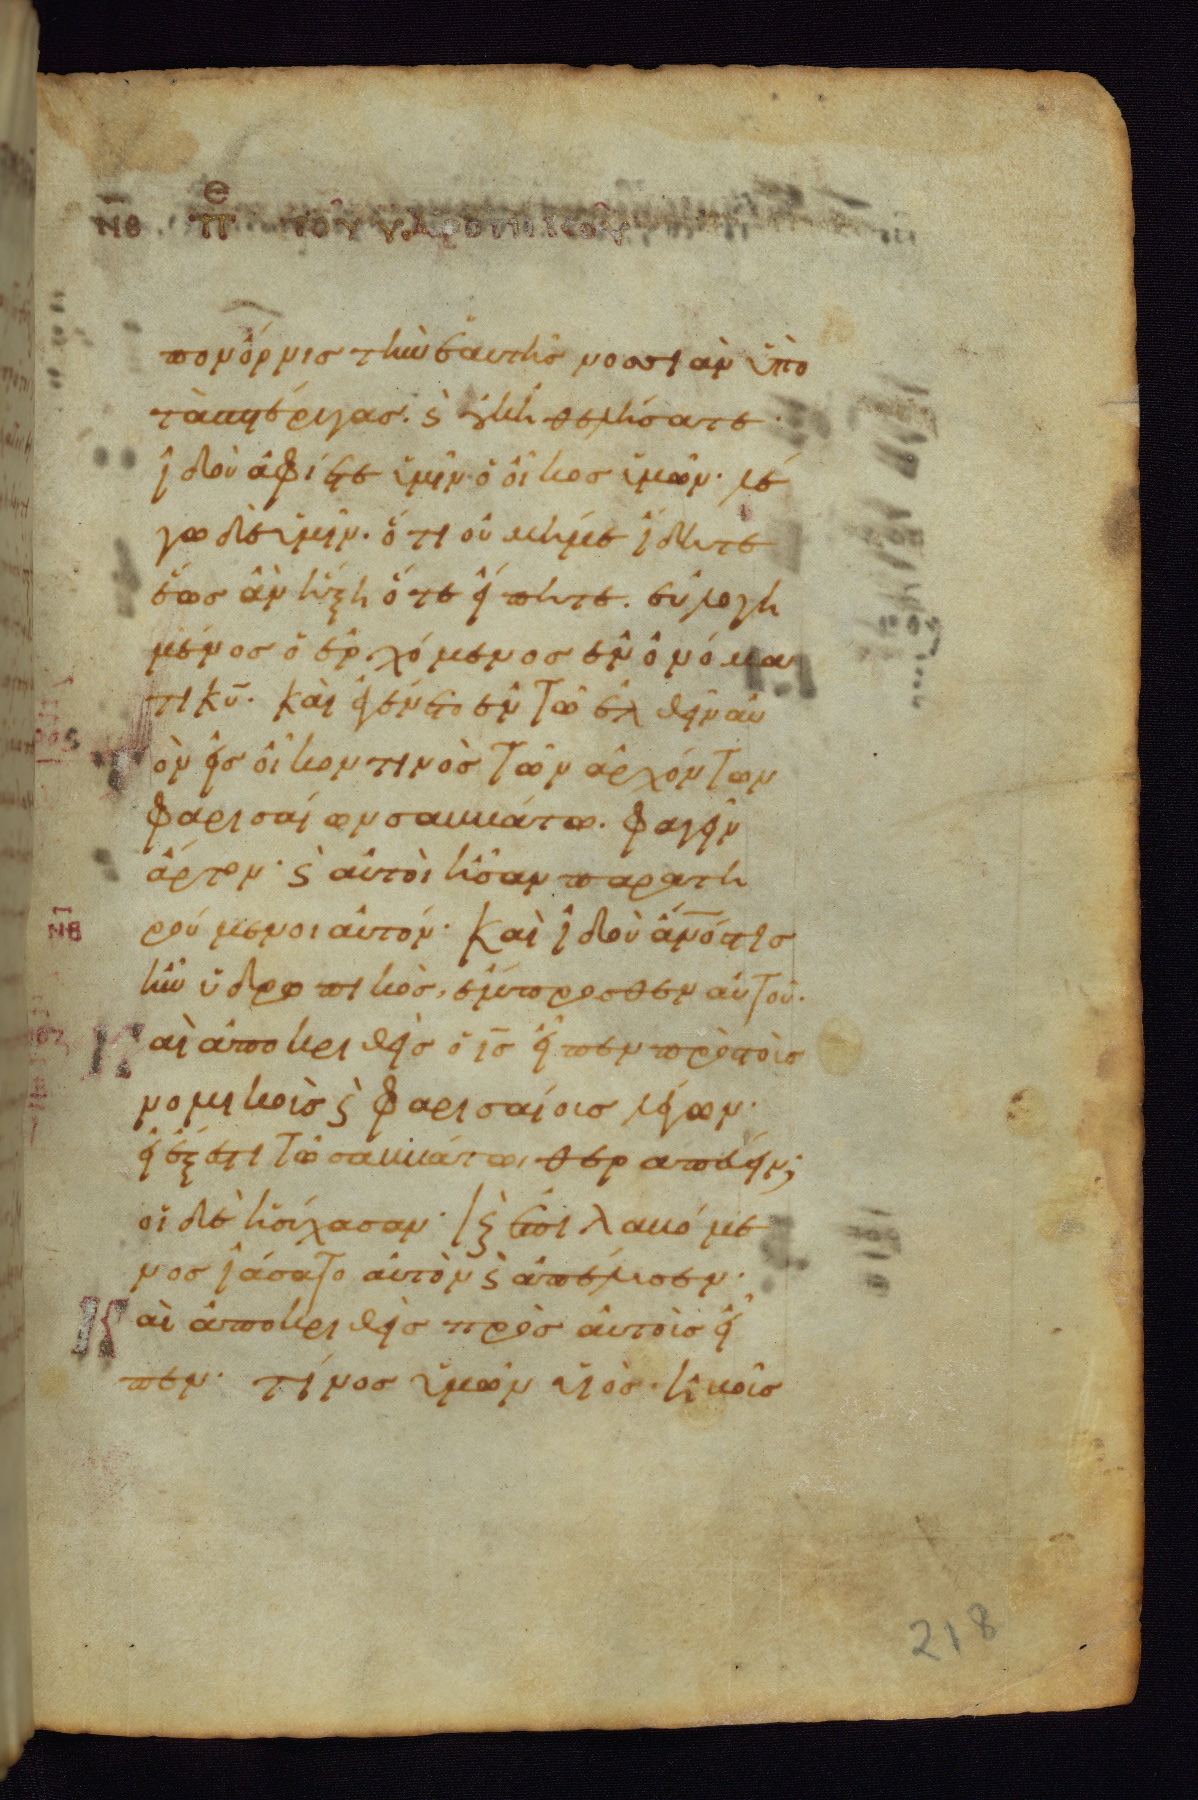 ΝΘ. ΠΕ ΤΟΥ ΥΔΡΟΠΙΚΟΥ
πον όρνισ τὴν ἑαυτῆς νοσσιὰν ὑπὸ
τὰς πτέριγας. ϛ οὐκ ἠθελήσατε·
ἰδοὺ ἀφίετε ὑμῖν ὁ οἶκος ὑμῶν· λέ
γω δὲ ὑμῖν· ὅτι οὐ μή με ἴδητε
ἕως ἂν ἥξη ὅτε εἴπητε. εὐλογη
μένος ὁ ἐρχόμενος ἐν ὀνόμα
τι κυ̅. Καὶ ἐγένετο ἐν τῶ ἐλθεῖν αὐ
τὸν εἰς οἶκον τινὸς τῶν ἀρχόντων
φαρισαίων σαββάτω. φαγεῖν
ἄρτον· ϛ αὐτοὶ ἦσαν παρατη
ρούμενοι αὐτόν· Καὶ ἰδοὺ ἀν̅ός τις
ΝΒ
ἦν ὑδροπικὸς, ἔμπροσθεν αὐτοῦ·
Καὶ ἀποκριθεὶς ὁ ις̅ εἶπεν πρὸς τοὺς
νομικοὺς ϛ φαρισαίους λέγων·
εἰ ἔξεστι τῶ σαββάτω, θεραπεύειν;
οἱ δὲ ἡσύχασαν· Κϛ ἐπιλαβόμε
νος ἰάσατο αὐτὸν ϛ ἀπέλυσεν·
Καὶ ἀποκριθεὶς πρὸς αὐτοὺς εἶ
πεν· τίνος ὑμῶν υἱὸς· ἢ βοῦς
218